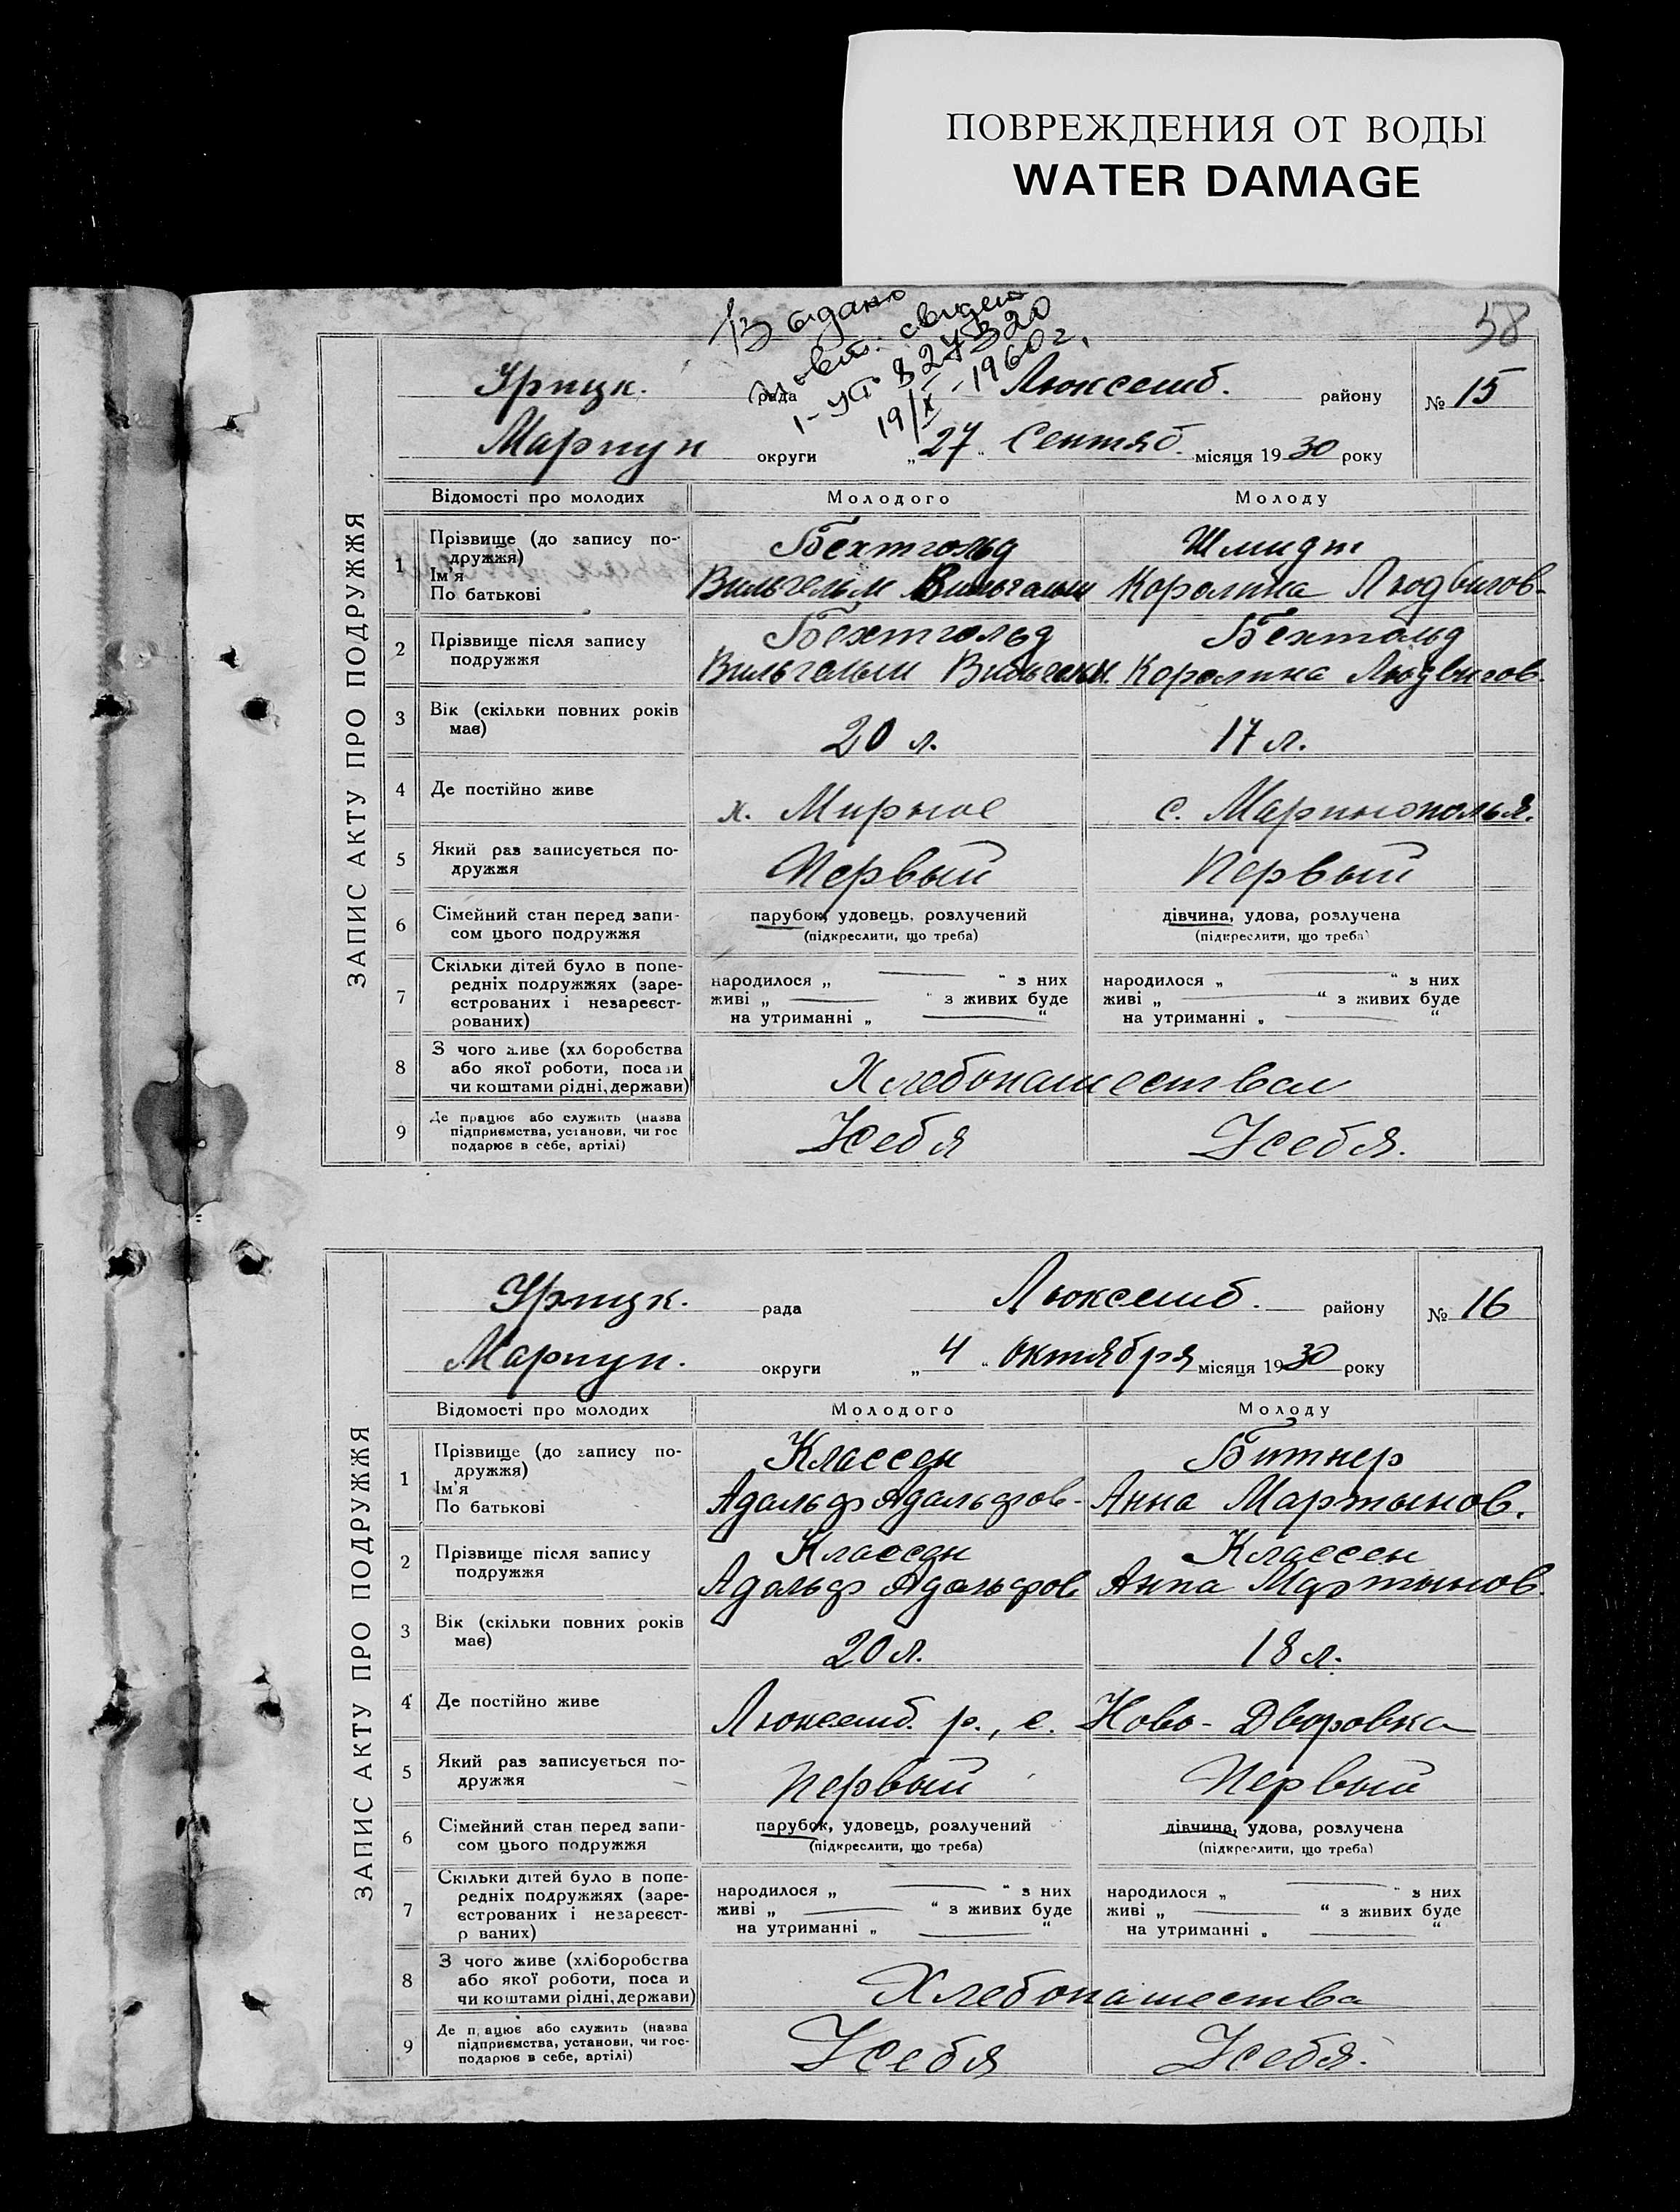 ПОВРЕЖДЕНИЯ ОТ ВОДЫ
WATER DAMAGE
58
Выдано
повт. свидет
1-УГ 827320
19/X-1960г.
ЗАПИС АКТУ ПРО ПОДРУЖЖЯ
Урицк. рада Люксемб. району № 15
Мариуп округи „27“ Сентяб. місяця 1930 року
Відомості про молодих Молодого Молоду
1 Прізвище (до запису по-
дружжя)
Ім'я
По батькові
Бехтгольд
Вильгельм Вильгельм
Шмидт
Каролина Людвигов-
2 Прізвище після запису
подружжя
Бехтгольд
Вильгельм Вильгельм.
Бехтольд
Каролина Людвигов.
3 Вік (скільки повних років
має)
20 л. 17 л.
4 Де постійно живе х. Мирное с. Мариинополья.
5 Який раз записується по-
дружжя
Первый Первый
6 Сімейний стан перед запи-
сом цього подружжя
парубок, удовець, розлучений
(підкреслити, що треба)
дівчина, удова, розлучена
(підкреслити, що треба)
7 Скільки дітей було в попе-
редніх подружжях (заре-
єстрованих і незареєст-
рованих)
народилося „ “ з них
живі „ “ з живих буде
на утриманні „ “
народилося „ “ з них
живі „ “ з живих буде
на утриманні „ “
8 З чого живе (хл боробства
або якої роботи, посади
чи коштами рідні, держави)
Хлебопашеством
9 Де працює або служить (назва
підприємства, установи, чи гос
подарює в себе, артілі)
У себя У себя.
ЗАПИС АКТУ ПРО ПОДРУЖЖЯ
Урицк. рада Люксемб. району № 16
Мариуп. округи „4“ октября місяця 1930 року
Відомості про молодих Молодого Молоду
1 Прізвище (до запису по-
дружжя)
Ім'я
По батькові
Классен
Адольф Адольфов-
Битнер
Анна Мартынов.
2 Прізвище після запису
подружжя
Классен
Адольф Адольфов
Классен
Анна Мартынов.
3 Вік (скільки повних років
має)
20 л. 18 л.
4 Де постійно живе Люксемб. р., с. Ново-Дворовка
5 Який раз записується по-
дружжя
Первый Первый
6 Сімейний стан перед запи-
сом цього подружжя
парубок, удовець, розлучений
(підкреслити, що треба)
дівчина, удова, розлучена
(підкреслити, що треба)
7 Скільки дітей було в попе-
редніх подружжях (заре-
єстрованих і незареєст-
р ваних)
народилося „ “ з них
живі „ “ з живих буде
на утриманні „ “
народилося „ “ з них
живі „ “ з живих буде
на утриманні „ “
8 З чого живе (хліборобства
або якої роботи, поса и
чи коштами рідні, держави)
Хлебопашества
9 Де п ацює або служить (назва
підприємства, установи, чи гос-
подарює в себе, артілі)
У себя У себя.